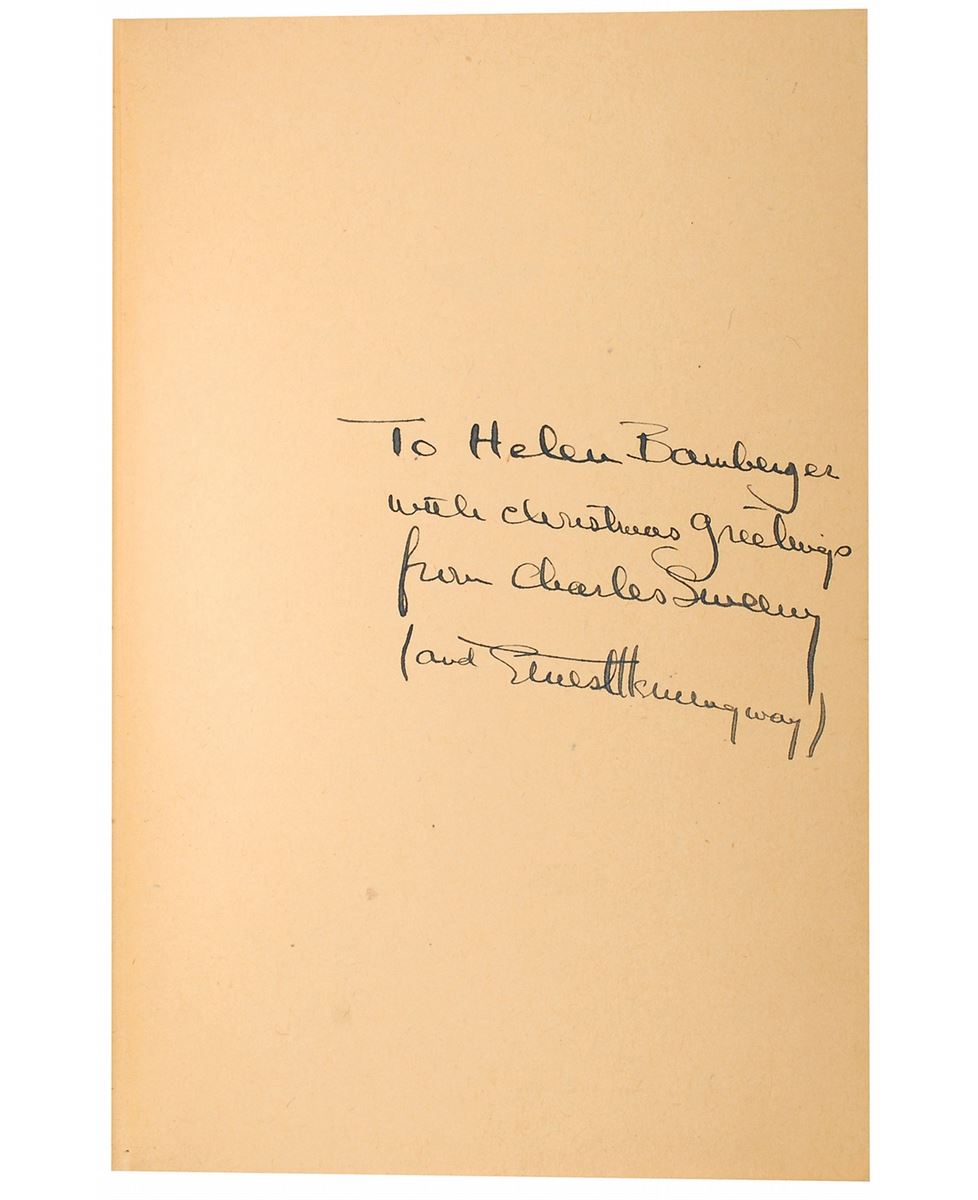 To Helen Bamberger
with christmas greetings
from Charles Sweeny
(and Ernest Hemingway)